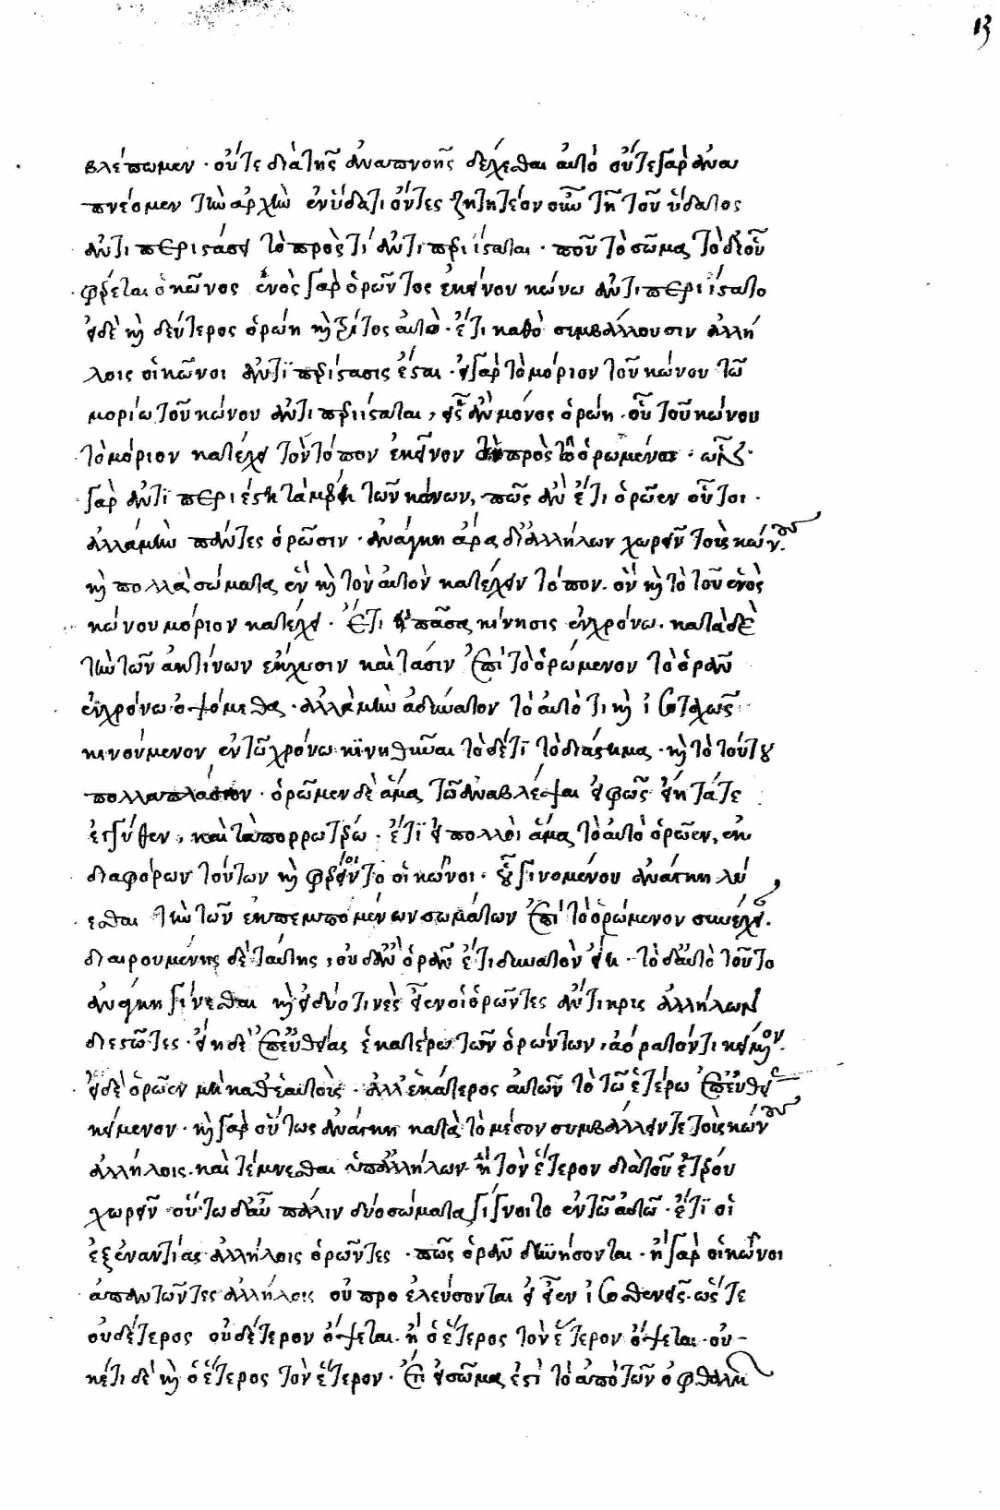 13
βλέπωμεν · οὔτε διὰ τῆς ἀναπνοῆς δέχεσθαι αὐτό οὔτε γὰρ ἀνα
πνέομεν τὴν ἀρχὴν ἐν ὕδατι ὄντες ζητητέον οὖν τῇ τοῦ ὕδατος
ἀντιπεριστάσει τὸ πρὸς τί ἀντιπεριίσταται · ποῦ τὸ σῶμα τὸ δι' οὗ
φέρεται ὁ κῶνος ἑνὸς γὰρ ὁρῶντος ἐκείνου κώνω ἀντιπεριίστατο
εἰ δὲ κὴ δεύτερος ὁρώη κὴ τρίτος αὐτὸ · ἔτι καθὸ συμβάλλουσιν ἀλλή
λοις οἱ κῶνοι ἀντιπερίστασις ἔσται · εἰ γὰρ τὸ μόριον τοῦ κώνου τῶ
μορίω τοῦ κώνου ἀντιπεριίσταται, εἷς ἂν μόνος ὁρώη · οὗ τοῦ κώνου
τὸ μόριον κατέχει τὸν τόπον ἐκεῖνον πρὸς τὸ ὁρώμενον ·
γὰρ ἀντιπεριέστη τὰ μέρη τῶν κώνων, πῶς ἂν ἔτι ὁρῶεν οὗτοι ·
ἀλλὰ μὴν πάντες ὁρῶσιν · ἀνάγκη ἄρα δι' ἀλλήλων χωρεῖν τοὺς κώνους.
κὴ πολλὰ σώματα ἓν κὴ τὸν αὐτὸν κατέχειν τόπον. ὃν κὴ τὸ τοῦ ἑνὸς
κώνου μόριον κατέχει · Ἔτι εἰ πᾶσα κίνησις ἐν χρόνω. κατὰ δὲ
τὴν τῶν ἀκτίνων ἔκχυσιν καὶ τάσιν ἐπὶ τὸ ὁρώμενον τὸ ὁρᾶν
ἐν χρόνω ὀψόμεθα · ἀλλὰ μὴν ἀδύνατον τὸ αὐτὸ τι κὴ ἰσοταχῶς
κινούμενον ἐν τῶ χρόνω κινηθῆναι τὸ δέ τι τὸ διάστημα · κὴ τὸ τούτου
πολλαπλάσιον · ὁρῶμεν δὲ ἅμα τῶ ἀναβλέψαι εἰ φῶς εἴη τά τε
ἐγγύθεν, καὶ τὰ πορρωτέρω · ἔτι εἰ πολλοὶ ἅμα τὸ αὐτὸ ὁρῶεν, ἐκ
διαφόρων τούτων κὴ φέροιντο οἱ κῶνοι · οὗ γινομένου ἀνάγκη λύ
εσθαι τὴν τῶν ἐκπεμπομένων σωμάτων ἐπὶ τὸ ὁρώμενον συνέχειαν.
διαιρουμένης δὲ ταύτης, οὐδ' ἂν ὁρᾶν ἔτι δυνατὸν εἴη · τὸ δ' αὐτὸ τοῦτο
ἀνάγκη γίνεσθαι κὴ εἰ δύο τινὲς εἶεν οἱ ὁρῶντες ἄντικρις ἀλλήλων
διεστῶτες · εἴη δὲ ἐπ' εὐθείας ἑκατέρω τῶν ὁρώντων, ἀόρατόν τι κείμενον.
εἰ δὲ ὁρῶεν μὴ καθ' ἑαυτοὺς · ἀλλ' ἑκάτερος αὐτῶν τὸ τῶ ἑτέρω ἐπ' εὐθείας
κείμενον · κὴ γὰρ οὕτως ἀνάγκη κατὰ τὸ μέσον συμβάλλειν τε τοὺς κώνους
ἀλλήλοις. καὶ τέμνεσθαι ὑπ' ἀλλήλων · ἢ τὸν ἕτερον διὰ τοῦ ἑτέρου
χωρεῖν · οὕτω δ' αὖ πάλιν δύο σώματα γίγνοιτο ἐν τῶ αὐτῶ · ἔτι οἱ
ἐξεναντίας ἀλλήλοις ὁρῶντες · πῶς ὁρᾶν δυνήσονται · ἢ γὰρ οἱ κῶνοι
ἀπαντῶντες ἀλλήλοις οὐ προελεύσονται εἰ εἶεν ἰσοσθενεῖς · ὥστε
οὐδέτερος οὐδέτερον ὄψεται. ἢ ὁ ἕτερος τὸν ἕτερον ὄψεται · οὐ-
κέτι δὲ κὴ ὁ ἕτερος τὸν ἕτερον · Ἔτι εἰ σῶμα ἐστὶ τὸ ἀπὸ τῶν ὀφθαλμῶν